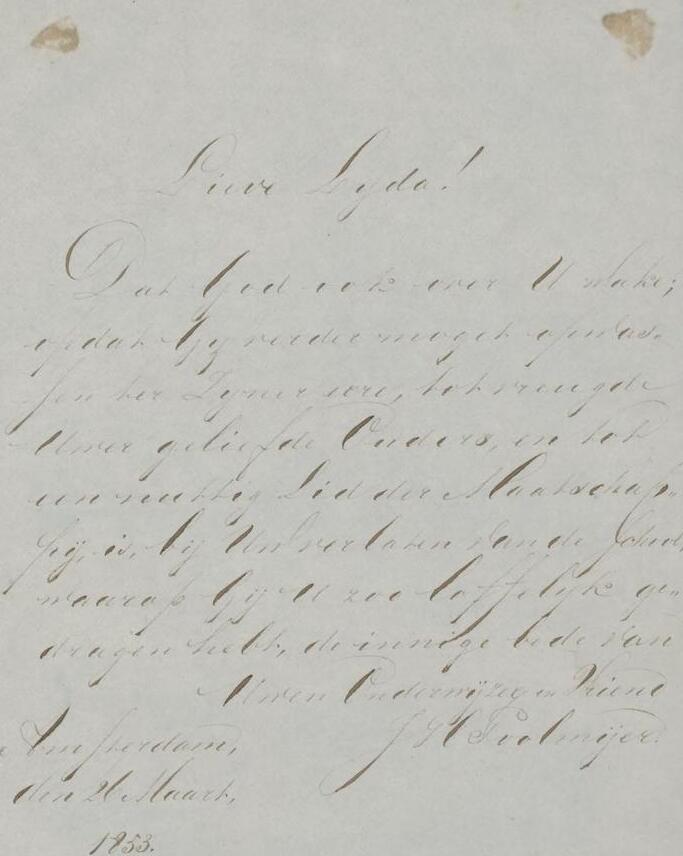 Lieve Lyda!
Dat God ook over U wake;
opdat Gij verder moget opwas-
sen ter Zyner eere, tot vreugde
Uwer geliefde Ouders, en tot
een nuttig Lid der Maatschap-
pij, is, bij Uw verlaten van de School,
waarop Gij U zoo loffelijk ge-
dragen hebt, de innige bede van
Uwen Onderwijzer en Vriend
J H Poolmijer.
Amsterdam,
den 26 Maart,
1853.